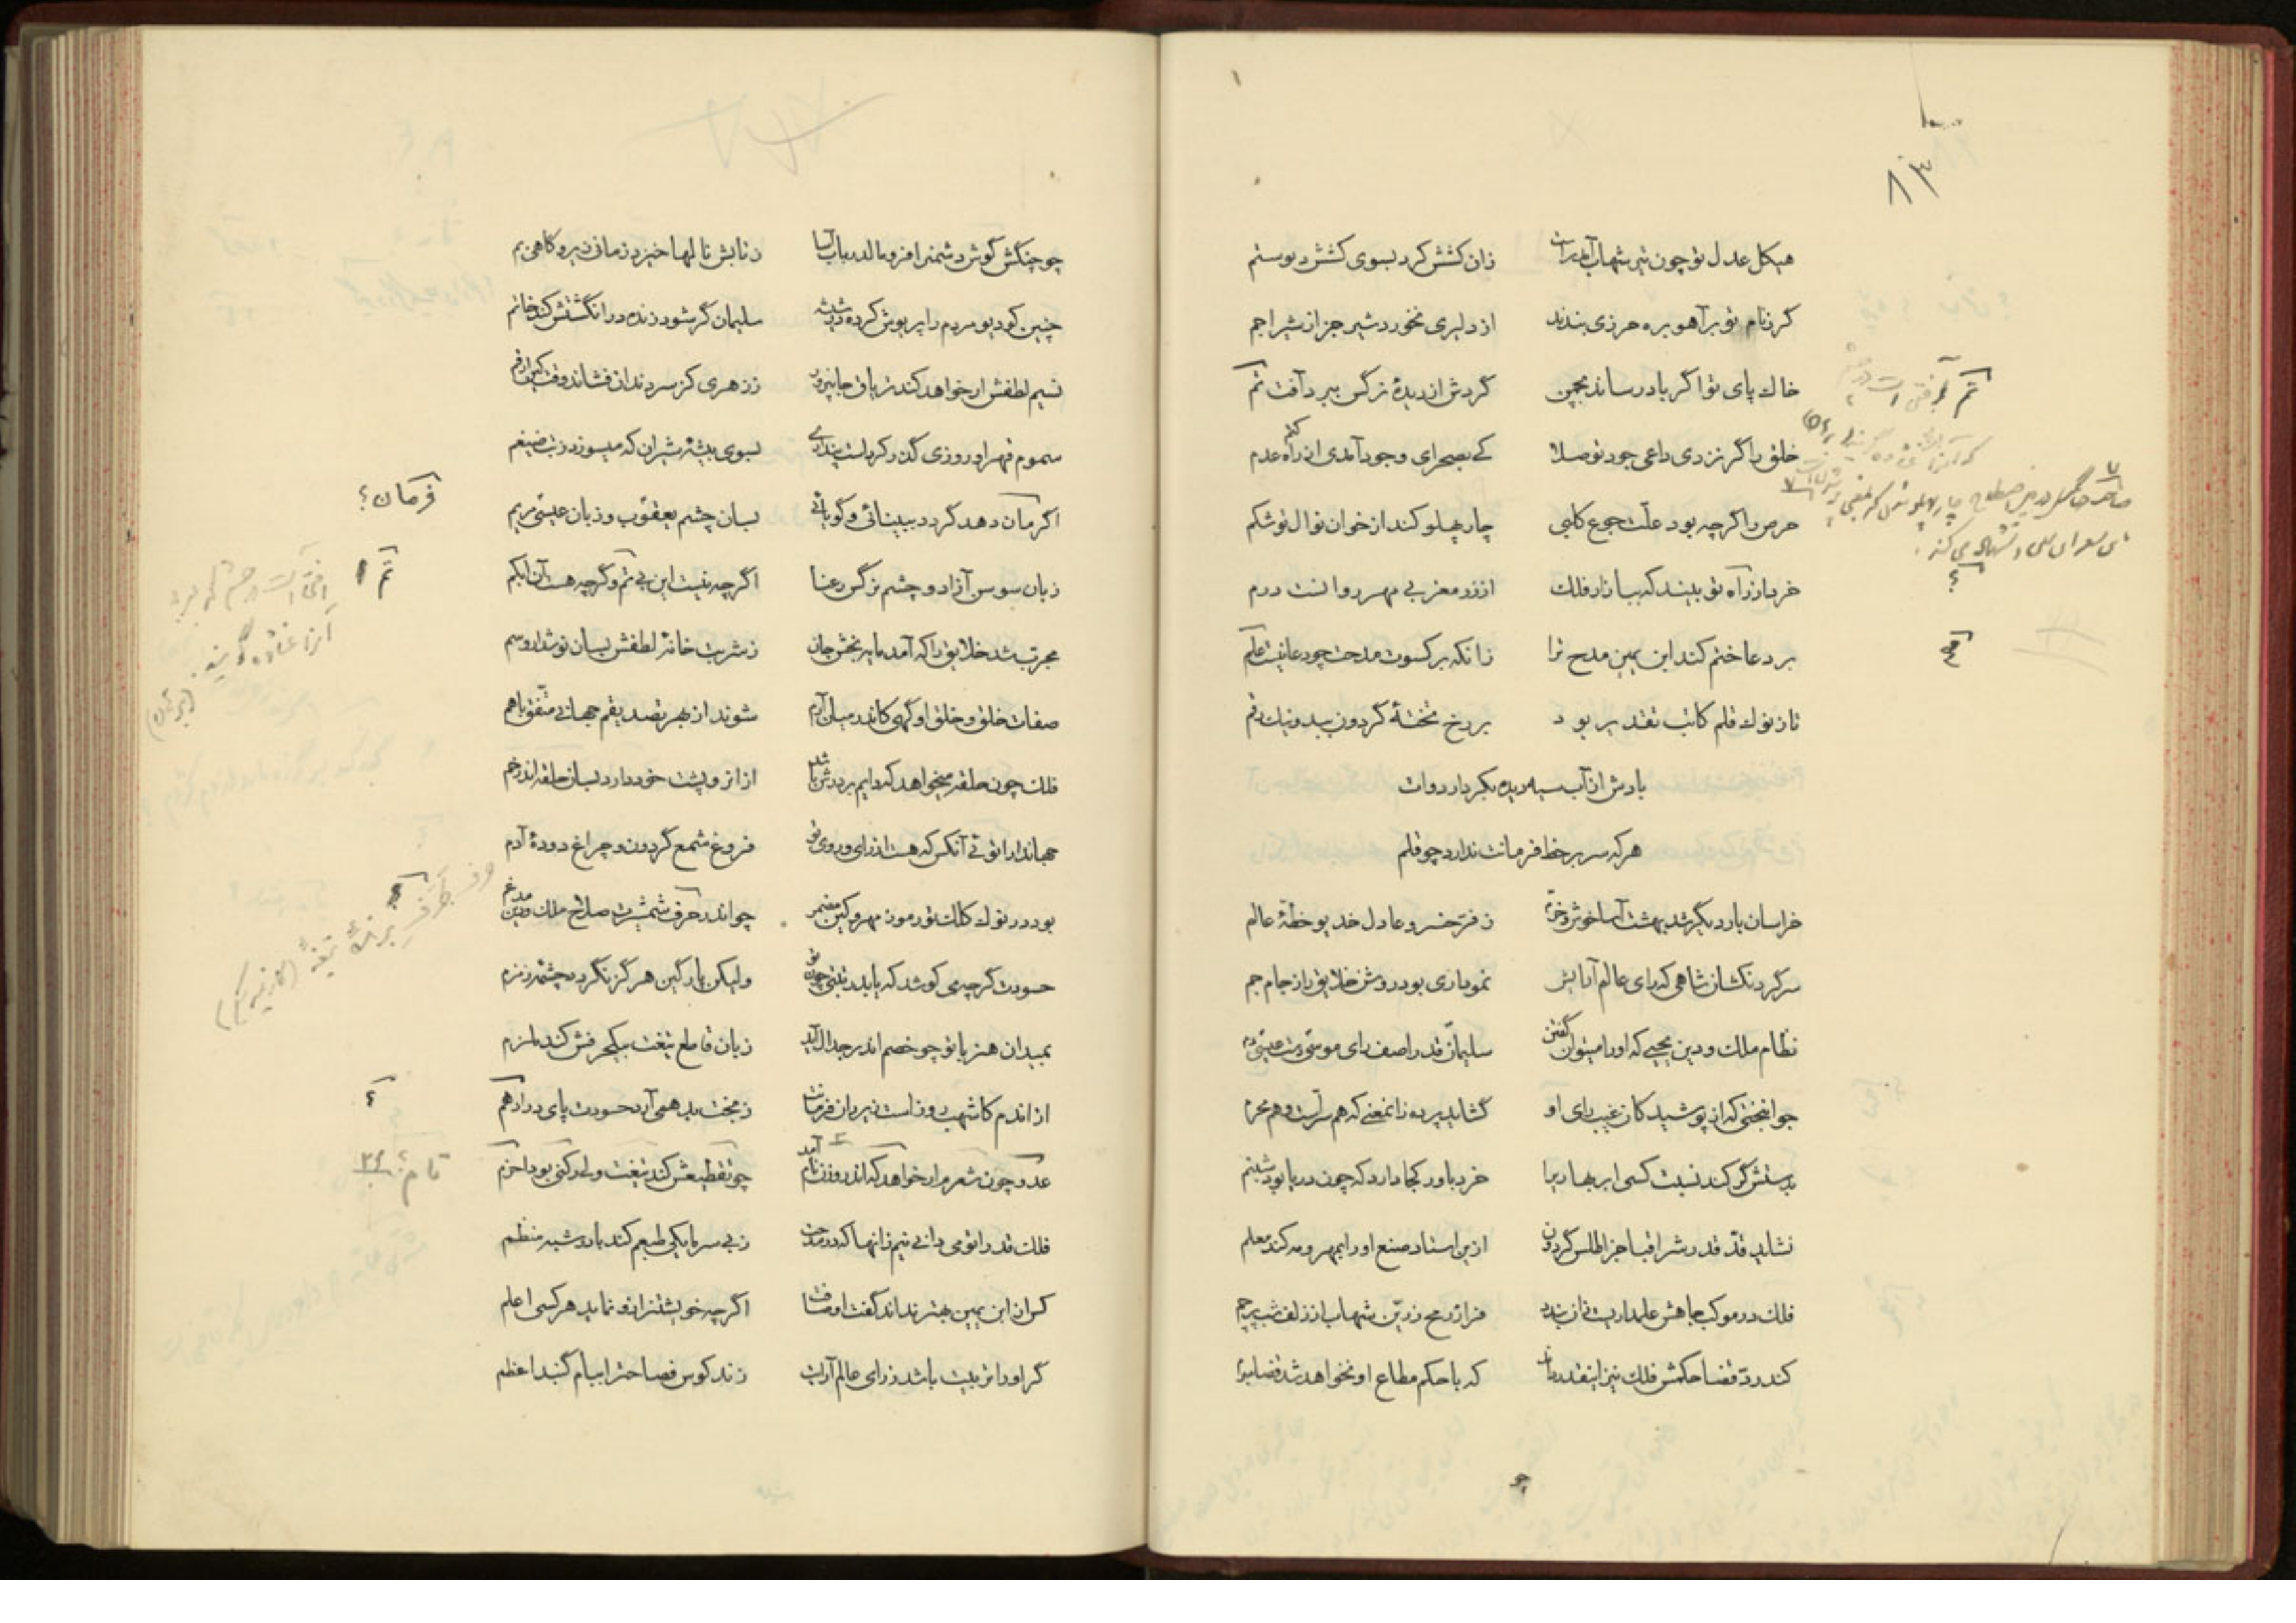 ۸۳
هیکل عدل تو چون تیر شهاب
زان کشش کرد بسوی کشش دیو ستم
گر ز نام تو بر آهو بره حرزی بندند
از دلیری نخورد شیر جز از شیر اجم
خاک پای تو اگر باد رساند بچمن
گردش از دیدهٔ نرگس ببرد آفت تم
خلق را گر نزدی داعی جود تو صلا
کی بصحرای وجود آمدی از راه عدم
حرص را گرچه بود علّت جوع کلبی
چار پهلو کند از خوان نوال تو شکم
خرد ار زآه تو بیند که ببازار فلک
از زر مغربی مهر روا نست درم
بر دعا ختم کند ابن یمین مدح ترا
زانکه بر کسوت مدحت چو دعا نیست علم
تا ز نوک قلم کاتب تقدیر بود
بر رخ تختهٔ گردون بد و نیک رقم
بادش از آب سیه دیده بکردار دوات
هر که سر بر خط فرمانت ندارد چو قلم
خراسان بار دیگر شد بهشت آسا خوش و خرّم
ز فرّ خسرو عادل خدیو خطّهٔ عالم
سر گردنکشان شاهی که رای عالم آرایش
نموداری بود روشن خلایق را ز جام جم
نظام ملک و دین یحیی که او را میتوان گفتن
سلیمان قدر آصف رای موسی دست عیسی دم
جوانبختی که از پوشیدگان غیب رای او
گشاید پرده زانمعنی که هم سرّست و هم محرم
بدستش گر کند نسبت کسی ابر بهاری را
خرد باور کجا دارد که چون دریا بود شبنم
نشاید قدّ قدرش را قبا جز اطلس گردون
ازین استاد صنع او را بمهر و مه کند معلم
فلک در موکب جاهش علمداریست نازنده
فرازرمح زرّین شهاب از زلف شب پرچم
کند ردّ قضا حکمش فلک نیز اینقدر داند
که با حکم مطاع او نخواهد شد قضا مبرم
چو
تم
؟
چو چنگش گوش دشمن را فرو مالد رباب آسا
ز تابش نالها خیزد زمانی زیر و گاهی بم
چنین کو دیو مردم را پریوش کرد در شیشه
سلیمان گر شود زنده در انگشتش کند خاتم
نسیم لطفش ار خواهد کند تریاق جانپرور
ز زهری کز سر دندان فشاند وقت کین ارقم
سموم قهر او روزی گذر کردست پنداری
بسوی بیشهٔ شیران که میسوزد ز تب ضیغم
اگر مان دهد گردد ببینائی و گویائی
بسان چشم یعقوب و زبان عیسی مریم
زبان سوسن آزاد و چشم نرگس رعنا
اگر چه نیست این بی تم و گرچه هست آن ابکم
مجرّب شد خلایق را که آمد مایه بخش جان
ز شربت خانهٔ لطفش بسان نوشدارو سم
صفات خلق و خلق او گهی کاندر میان آرم
شوند از بهر تصدیقم جهانی متّفق باهم
فلک چون حلقه میخواهد که دایم بر درش باشد
از انرو پشت خود دارد بسان حلقه اندر خم
جهاندارا توئی آنکس که هست از رای و روی تو
فروغ شمع گردون و چراغ دودهٔ آدم
بود در نوک کلک تو رموز مهر و کین مضمر
چو اندر حرف شمشیرت صلاح ملک و دین مدغم
حسودت گرچه می کوشد که یابد رتبتی چون تو
ولیکن پارگین هرگز نگردد چشمهٔ زمزم
بمیدان هنر با تو چو خصم اندر جدال آید
زبان قاطع تیغت بیکحرفش کند ملزم
از اندم کاشهب روز است زیر ران فرمانت
ز بخت بد همی آرد حسودت پای در ادهم
عدو چون شعرم ار خواهد که اندر وزن نام آمد
چو تقطیعش کند تیغت ولی رکنی بود اخرم
فلک قدرا تو می دانی نیم زانها که در مدحت
ز بی سرمایگی طبعم کند بارد شبه منظم
کس از ابن یمین بهتر نداند گفت اوصافت
اگر چه خویشتن را زو نماید هر کسی اعلم
گر او را تربیت باشد ز رای عالم آرایت
زند کوس فصاحت را ببام گنبد اعظم
فرمان؟
تم
؟